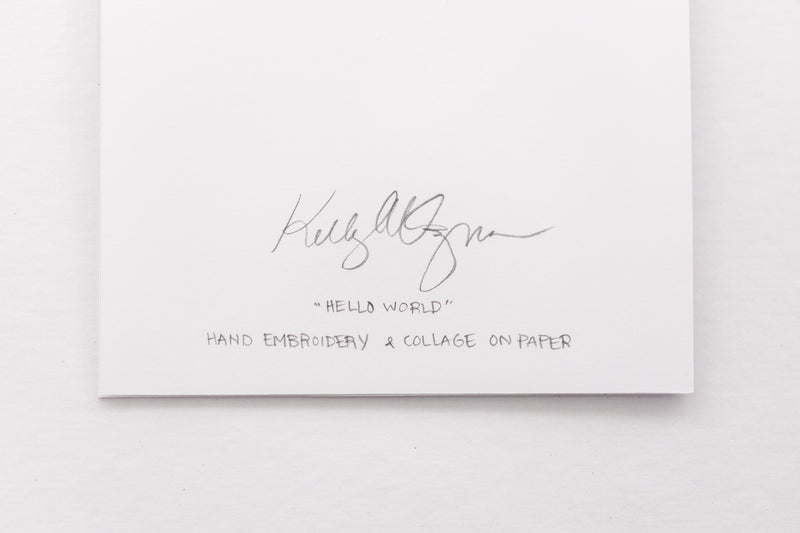 Kelly
"HELLO WORLD"
HAND EMBROIDERY & COLLAGE ON PAPER